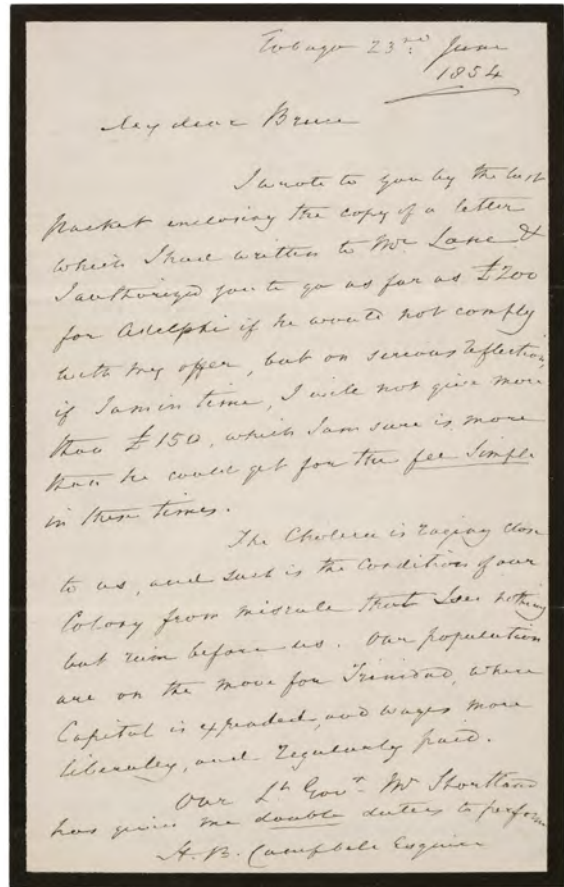 Tobago 23rd June
1854
My dear Bruce
I wrote to you by the last
packet enclosing the copy of a letter
which I had written to Mr Lane &
I authorized you to go as far as £200
for Adelphi if he would not comply
with my offer, but on serious reflection,
if I am in time, I will not give more
than £150, which I am sure is more
than he could get for the fee simple
in these times.
The Cholera is raging close
to us, and such is the condition of our
Colony from misrule that I see nothing
but ruin before us. Our population
are on the move for Trinidad, where
Capital is expended, and wages more
liberally, and regularly paid.
Our Lt Govr Mr Shortland
has given me double duties to perform
H. B. Campbell Esquire